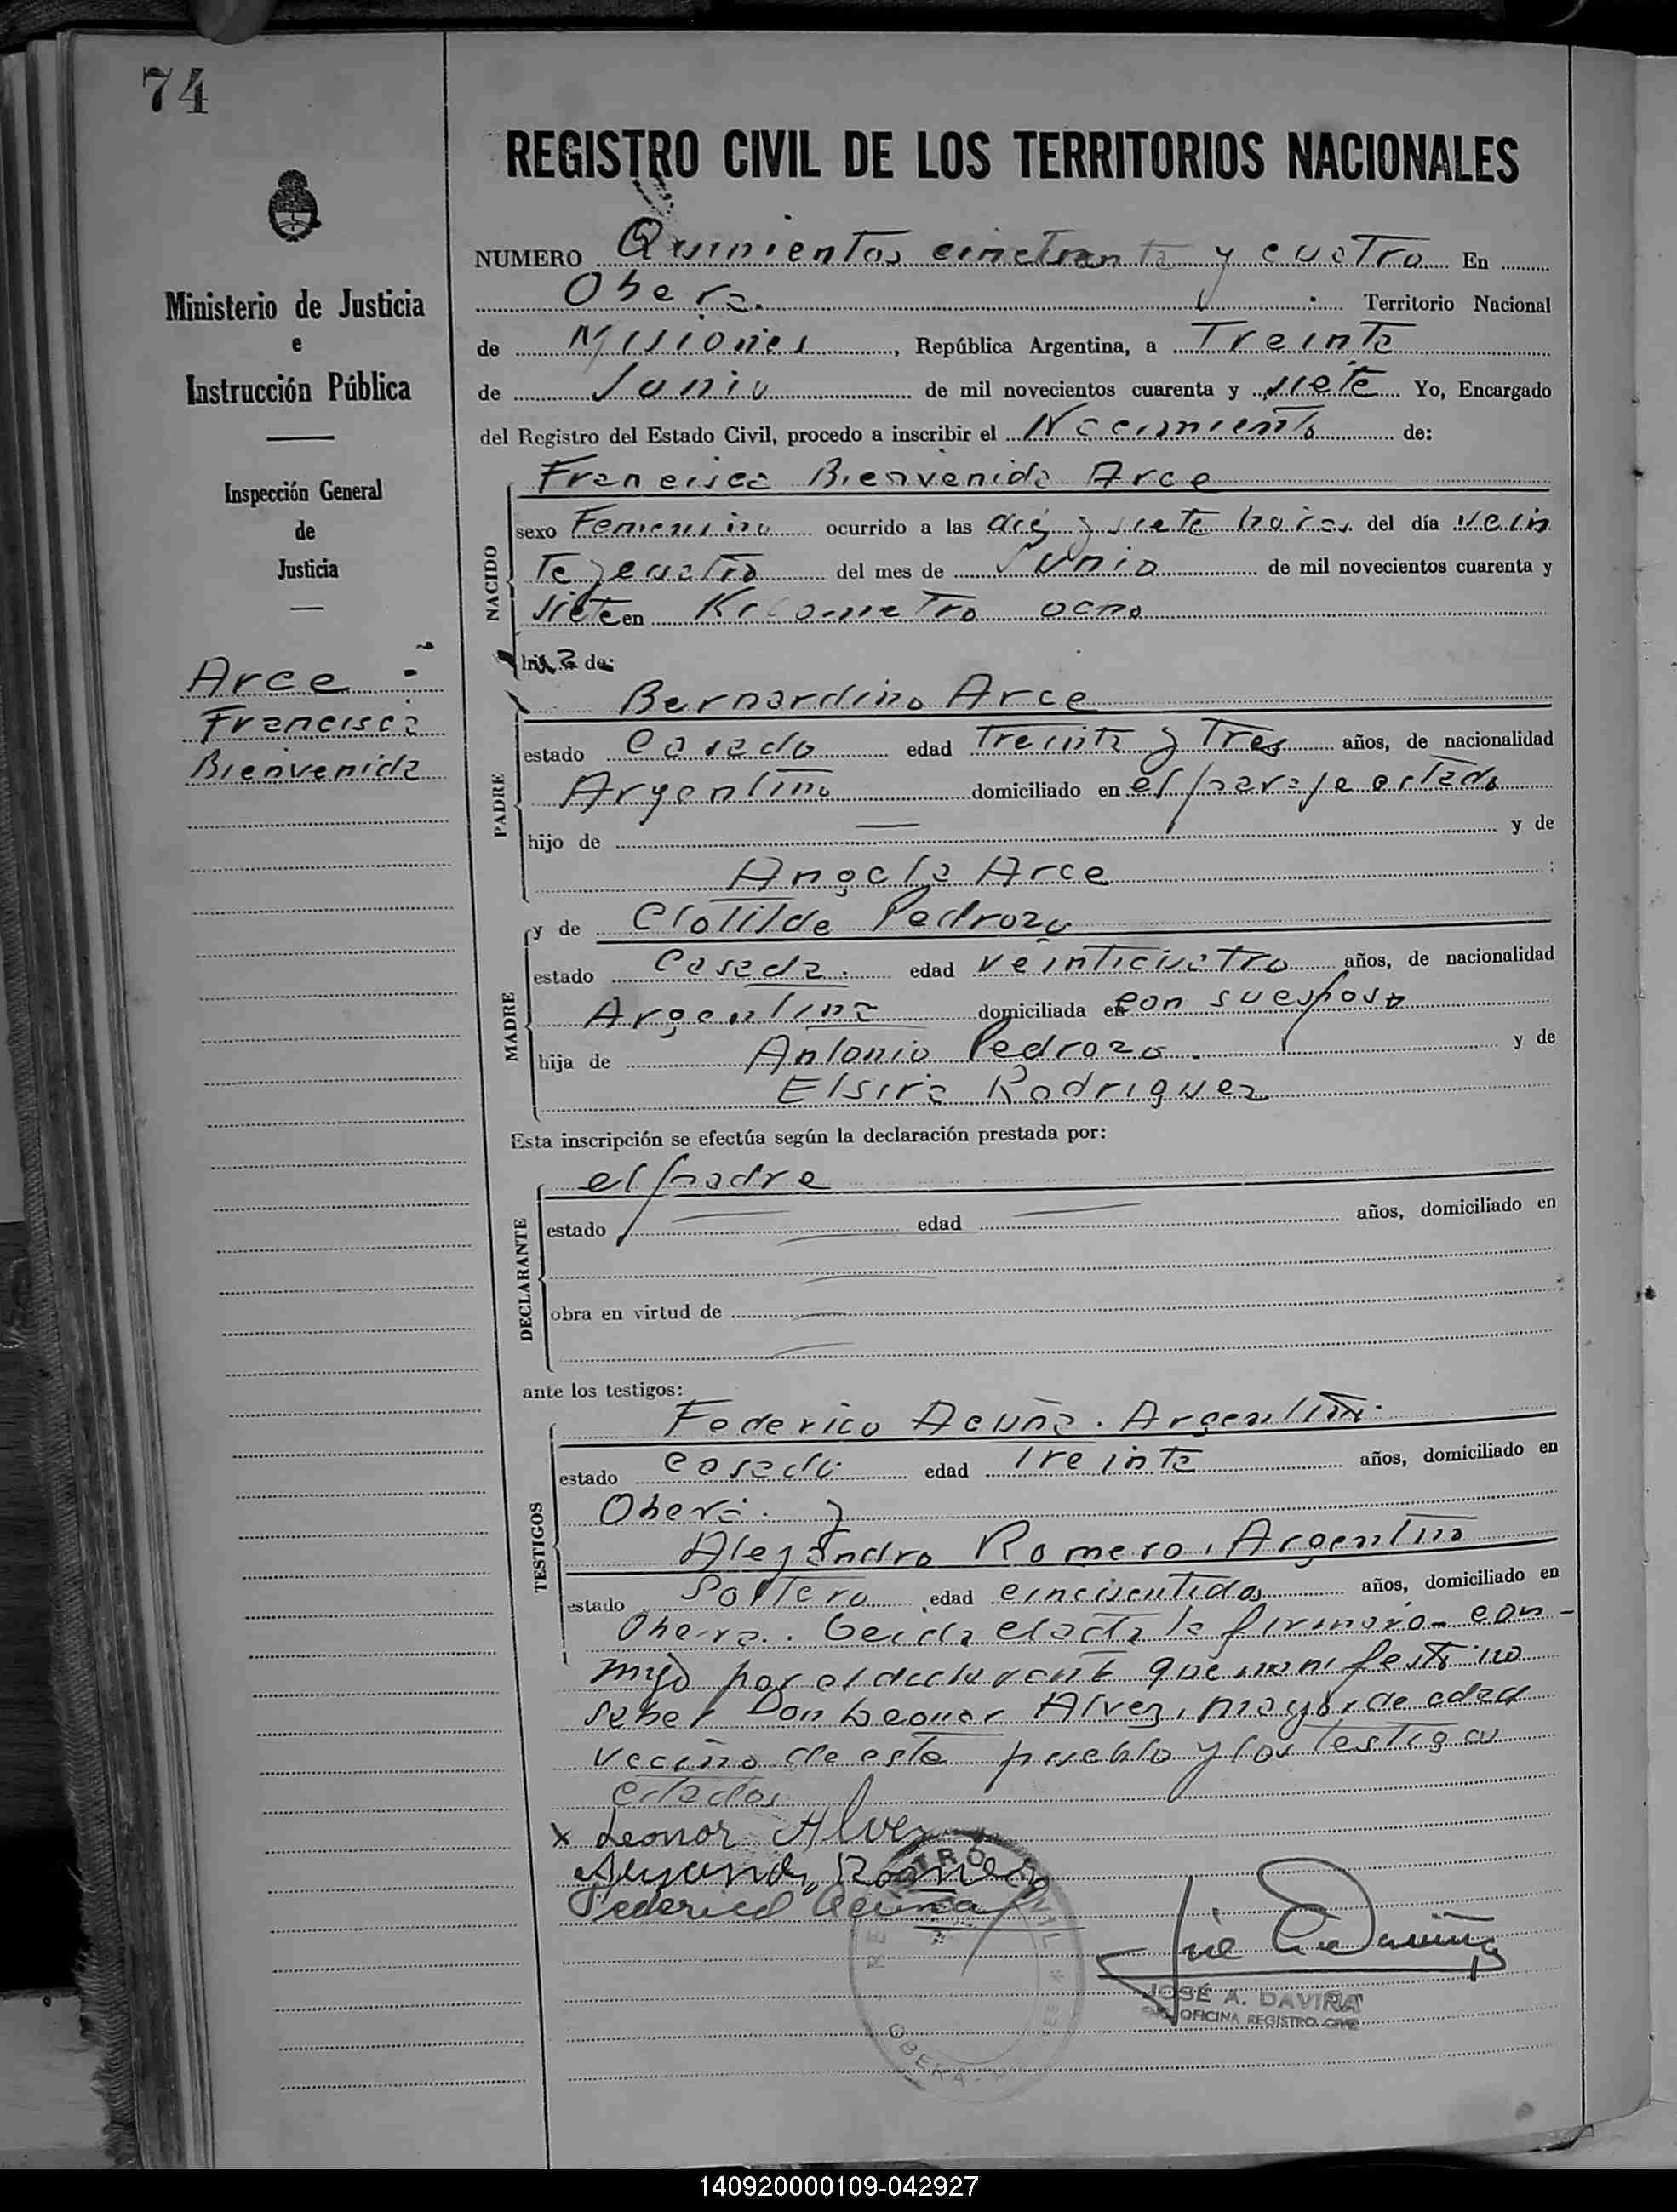 74
REGISTRO CIVIL DE LOS TERRITORIOS NACIONALES
Ministerio de Justicia
e
Instrucción Pública
Inspección General
de
Justicia
Arce
Francisca
Bienvenida
NUMERO Quinientos cincuenta y cuatro En
Obera. Territorio Nacional
de Misiones, República Argentina, a Treinta
de Junio de mil novecientos cuarenta y siete Yo, Encargado
del Registro del Estado Civil, procedo a inscribir el Nacimiento de:
NACIDO
Francisca Bienvenida Arce
sexo Femenino ocurrido a las diez y siete horas del día vein
te y cuatro del mes de Junio de mil novecientos cuarenta y
siete en Kilometro ocho
hija de:
PADRE
Bernardino Arce
estado Casado edad Treinta y Tres años, de nacionalidad
Argentino domiciliado en el paraje citado
hijo de — y de
Angela Arce
MADRE
y de Clotilde Pedrozo
estado Casada. edad veinticuatro años, de nacionalidad
Argentina domiciliada en con su esposo
hija de Antonio Pedrozo. y de
Elsira Rodriguez
Esta inscripción se efectúa según la declaración prestada por:
DECLARANTE
el padre
estado edad años, domiciliado en
obra en virtud de
ante los testigos:
TESTIGOS
Federico Acuña. Argentino.
estado casado edad Treinta años, domiciliado en
Obera. y
Alejandro Romero, Argentino
estado Soltero edad cincuentidos años, domiciliado en
Obera. Leida el acta la firmaron con-
migo por el declarante que manifestó no
saber Don Leonor Alvez, mayor de edad
vecino de este pueblo y los testigos
citados
x Leonor Alvez
Alejandro Romero
Federico Acuña
JOSÉ A. DAVIÑA
OFICINA REGISTRO CIVIL
OBERA
140920000109-042927